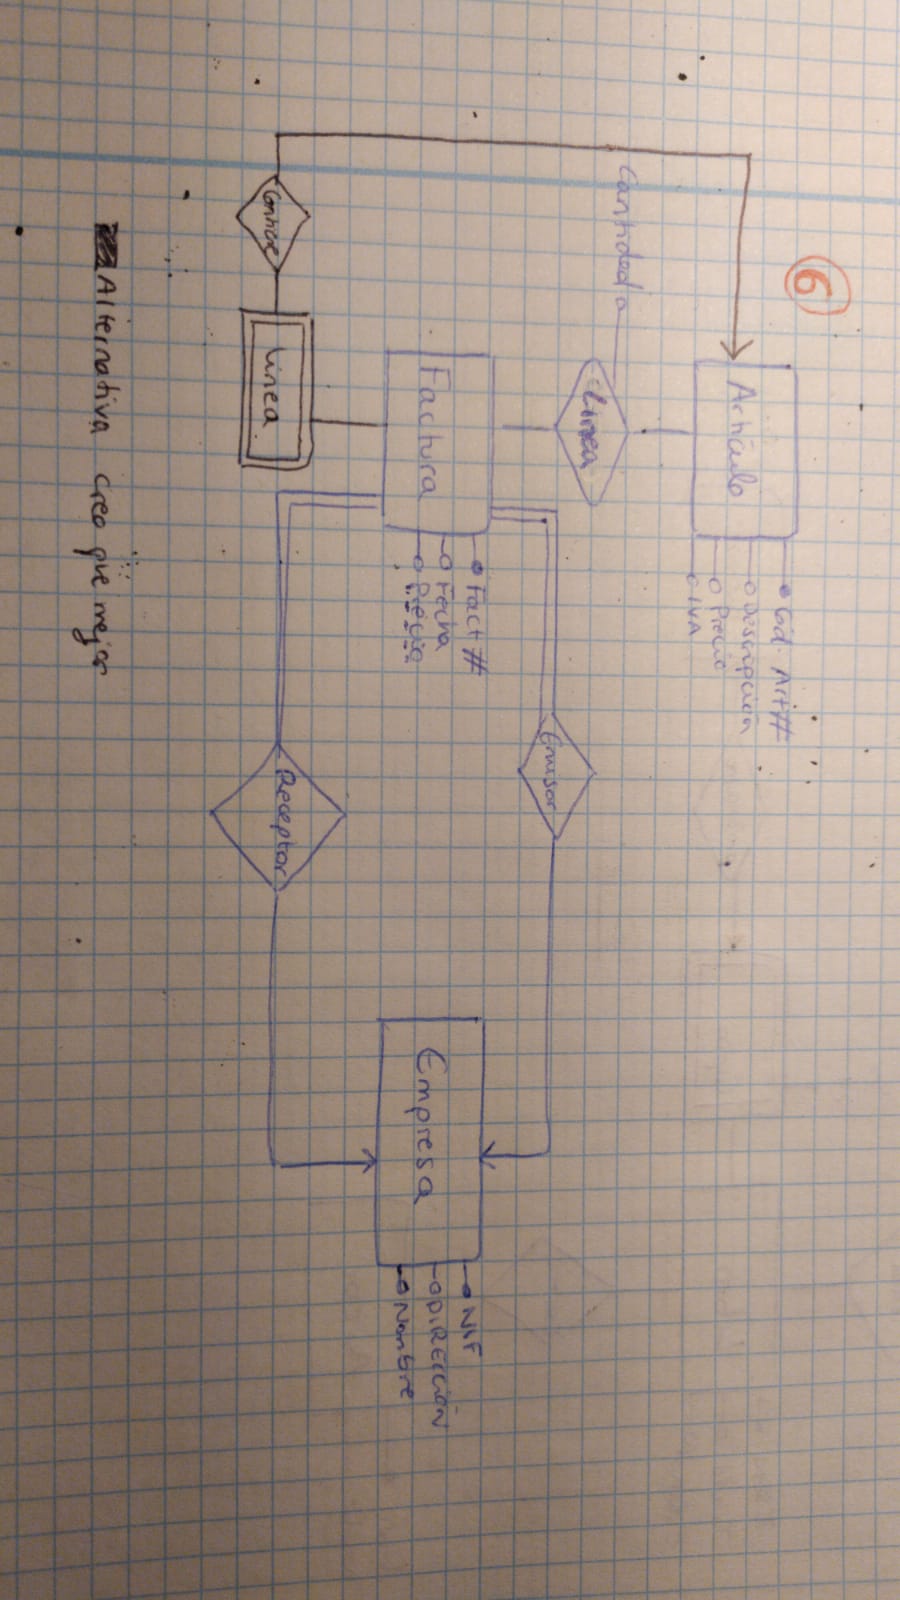 6
Artículo
Cód. Art#
Descripción
Precio
IVA
Cantidad
Línea
Emisor
Factura
Fact#
Fecha
Precio
Empresa
NIF
DIRECCIÓN
Nombre
Contiene
Línea
Receptor
Alternativa creo que mejor